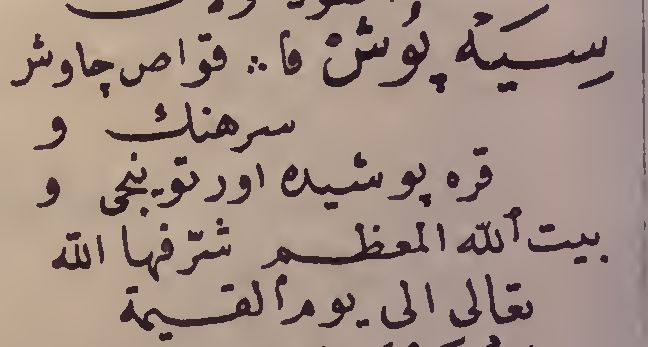 سِيَهْ پُوشْ فا ∴ قواص چاوش
سرهنك و
قره پوشيده اورتويىجى و
بيت ٱلله المعظم شرّفها الله
تعالى الى يوم ٱلقيمة